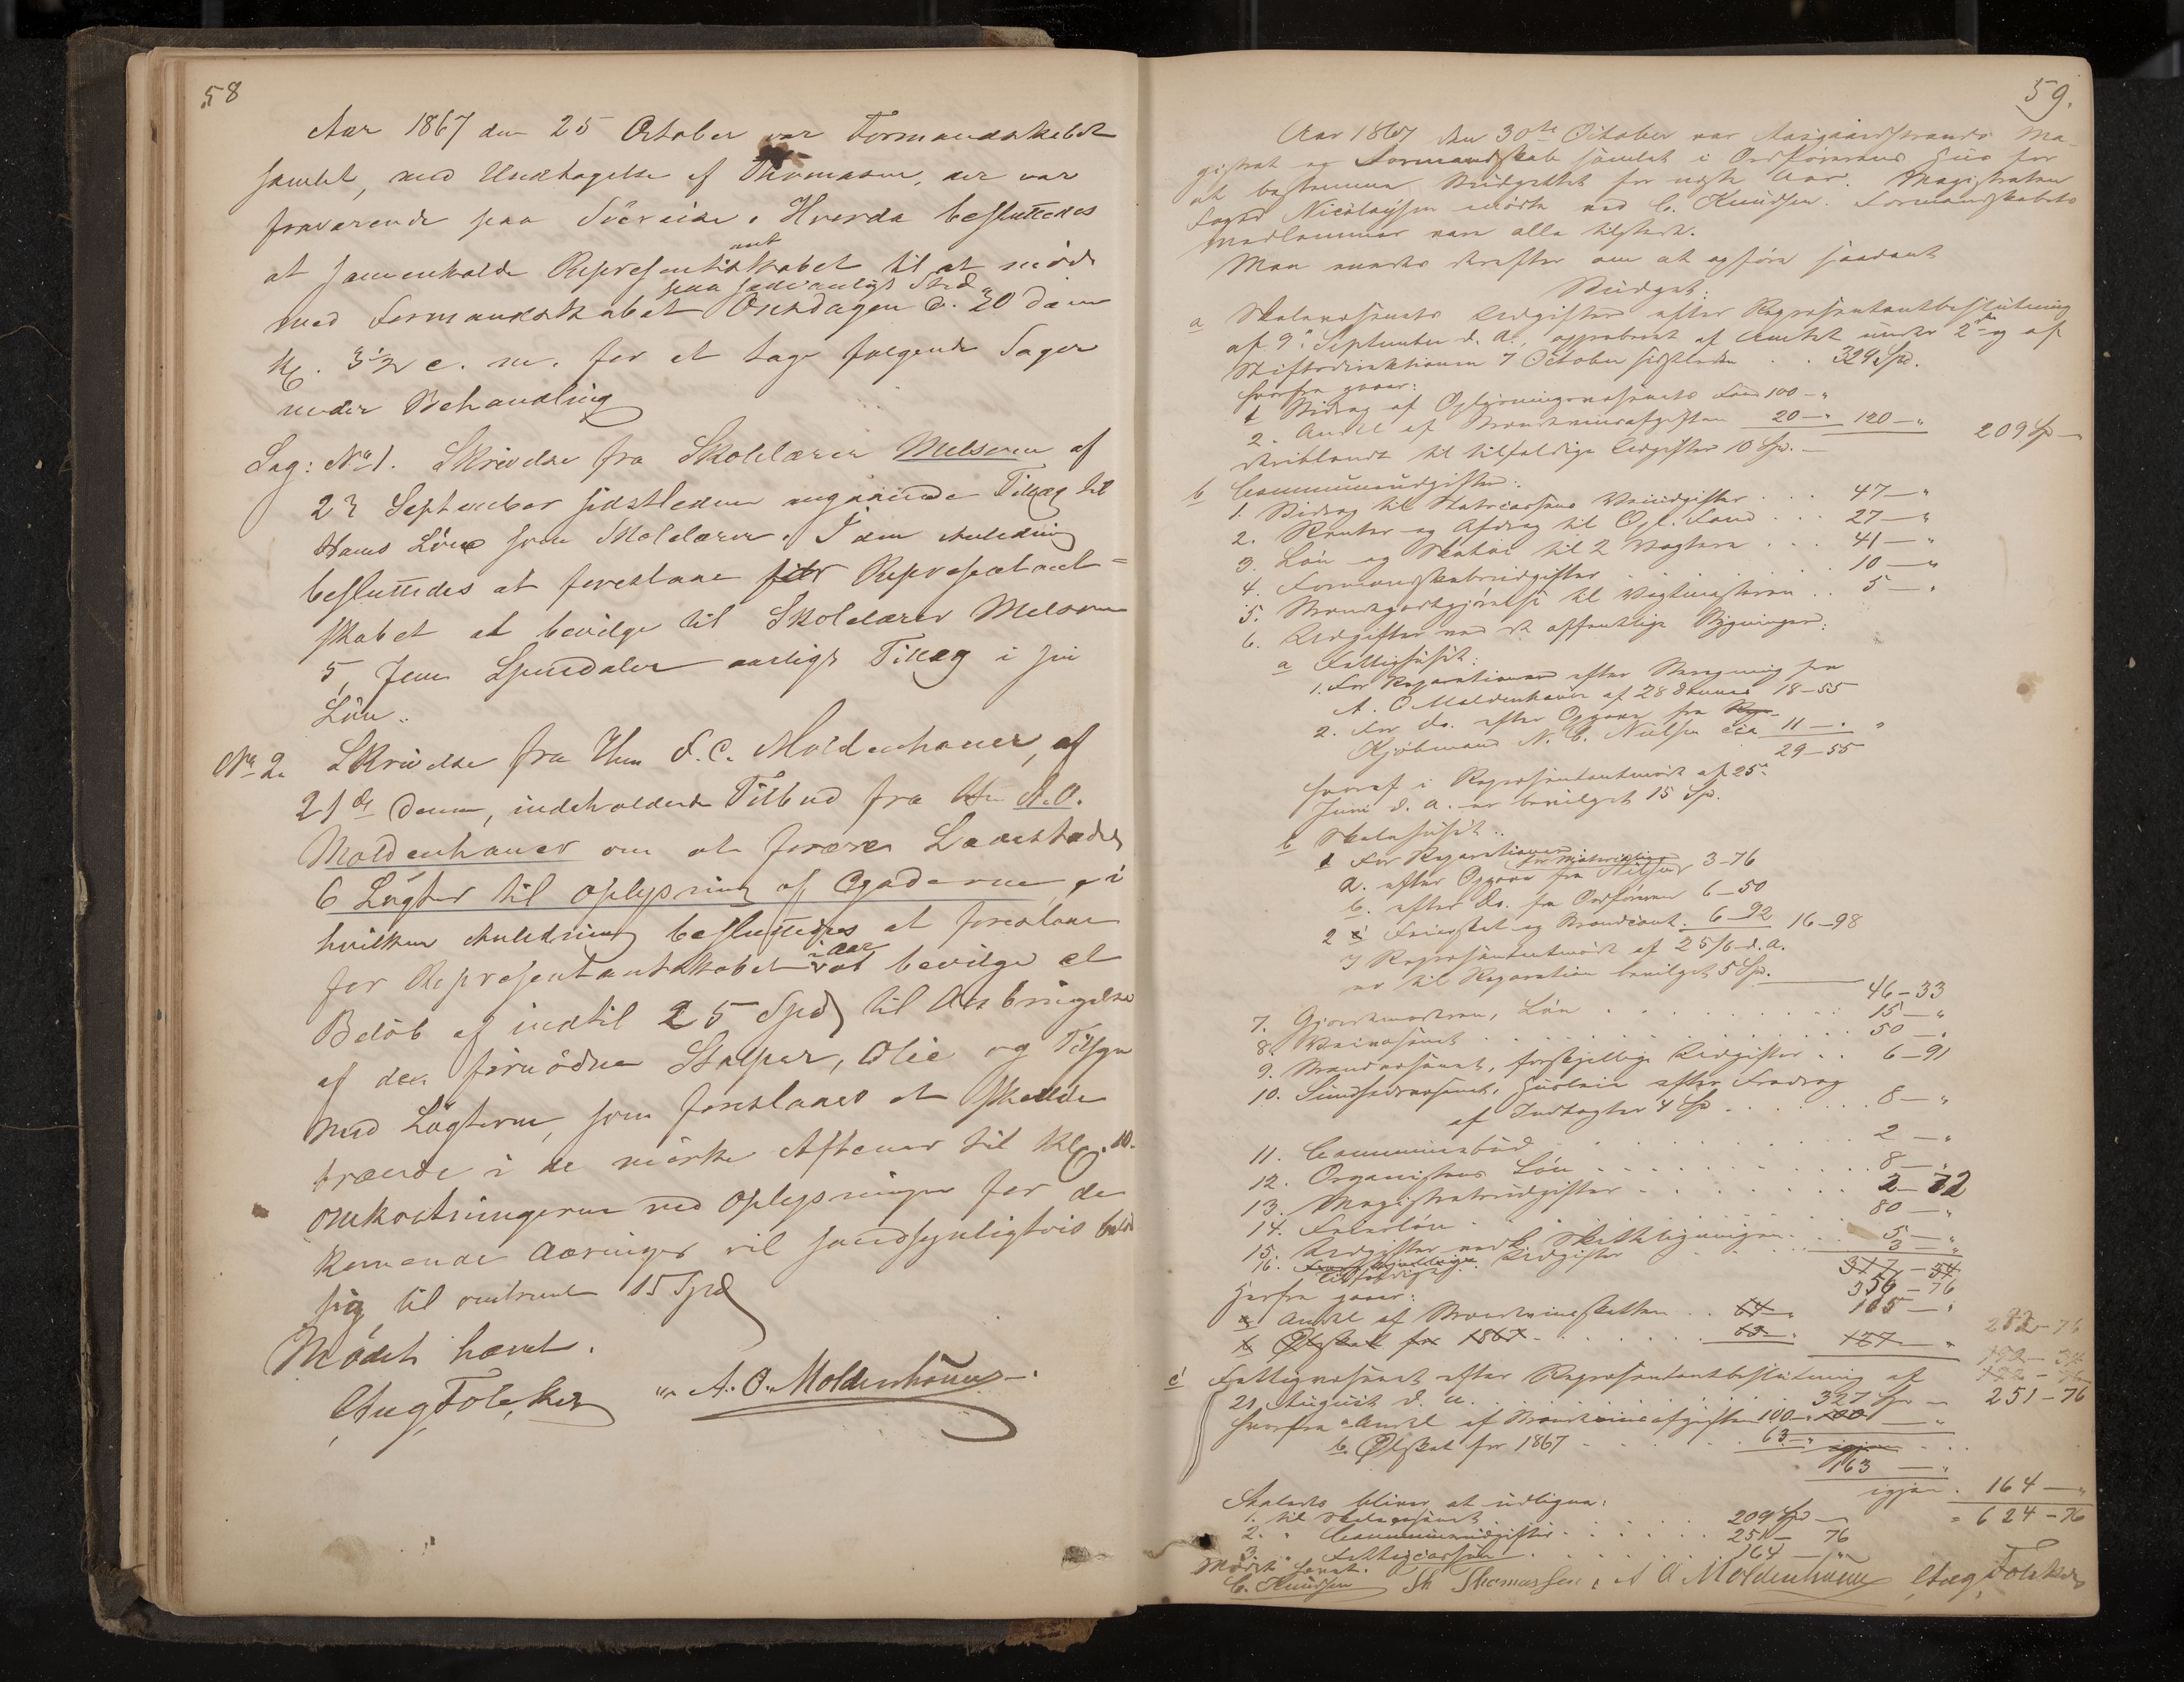 58
Aar 1867 den 25 October var Formandskabet
samlet, med Undtagelse af Thomasen, der var
fraværende paa Söereise. Hvorda besluttedes
at sammenkalde Representantskabet til at møde
med Formandskabet paa sædvanligt Sted Onsdagen d. 30 dennes
Kl. 3½ e. m. for at tage følgende Sager
under Behandling
Sag: No 1. Skrivelse fra Skolelærer Melsom af
23 September sidstleden angaaende Tillæg til
Hans Lön som Skolelærer. I den Anledning
besluttedes at foreslaae for Representant=
skabet at bevilge til Skolelærer Melsom
5, fem Speciedaler aarligt Tillæg i sin
Lön.
No 2. Skrivelse fra Hrr F. C. Moldenhauer, af
21de dennes, indeholdende Tilbud fra Hr A.O.
Moldenhauer om at forære Ladestedet
6 Lögter til Oplysning af Gaderne, i
hvilken Anledning besluttedes at foreslaae
for Representantskabet i Aar at bevilge et
Belöb af indtil 25 Spd til Anbringelse
af den fornödne Stolper, Olie og Tilsyn
med Lögterne, som foreslaaes at skulde
brænde i de mörke Aftener til Kl. 10.
Omkostningerne ved Oplysningen for de
kommende Aaringer vil sandsynligvis belöbe
sig til omtrent 15 Spd
Mödet hævet.
Aug Folcker " A. O. Moldenhauer
59.
Aar 1867 den 30te October var Aasgaardstrands Ma-
gistrat og Formandskab samlet i Ordförerens Huus for
at bestemme Budgettet for næste Aar. Magistraten
Foged Nicolaysen mödte ved C. Knudsen. Formandskabets
Medlemmer vare alle tilstede.
Man enedes derefter om at opföre saadant
Budget:
a Skolevæsenets Udgifter efter Repræsentantbeslutning
af 9de September d. A., approberet af Amtet under 2den og af
Stiftsdirektionen 7 October sidstleden . . 329 Spd.
hvorfra gaaer:
1 Bidrag af Oplysningsvæsenets Fond 100 — "
2. Andel af Brændeviinsafgiften 20 — " 120 — " 209 Sp —
deriblandt til tilfældige Udgifter 10 Spd. —
b Communeudgifter:
1. Bidrag til Statscassens Veiudgifter . . . 47 — "
2. Renter og Afdrag til Opl. Fond . . . 27 — "
3. Lön og Skatter til 2 Vægtere . . . 41 — "
4. Formandskabsudgifter . . . 10 — "
5. Brændegodtgjörelse til Vægtmesteren . . 5 — "
6. Udgifter ved de offentlige Bygninger:
a Fattighuset:
1. For Reparationer efter Beregning fra
A. O Moldenhauer af 28 dennes 18 — 55
2. For do. efter Opgave fra
Kjöbmand N. C. Nielsen cia 11 — " "
29 — 55
hvoraf i Repræsentantmöde af 25de
Juni d. A. er bevilget 15 Spd.
b Skolehuset:
1 For Reparationer:
a. efter Opgave fra Nielsen for Materialier 3 — 76
b. efter do. fra Ordföreren 6 — 50
2 Feiersket og Brandcont. 6 — 92 16 — 98
I Repræsentantmöde af 25/6 d. A.
er til Reparation bevilget 5 Spd. 46 — 33
7. Gjordemoderen, Lön . . . 15 — "
8. Veivæsenet . . . 50 — "
9. Brandvæsenet, forskjellige Udgifter . . 6 — 91
10. Sundhedsvæsenet, Huusleie efter Fradrag
af Indtægter 4 Sp . . . 8 — "
11. Communebud . . . 2 — "
12. Organistens Lön . . . 8 — "
13. Magistratsudgifter . . . 2 — 72
14. Feierlön . . . 80 — "
15. Udgifter ved Skatteligningen . . . 5 — "
16. Tilfældige Udgifter . . . 3 — "
377 — 54
356 — 76
Herfra gaaer:
a Andel af Brændeviinsskatten . . 64 " 105 — "
b Ölskat for 1867 . . . 63 " 127 — "
c Fattigvæsenet efter Repræsentantbeslutning af
21 August d. A. . . . 327 Sp — 251 — 76
hvorfra a Andel af Brændeviinsafgiften 100 — "
b. Ölskat for 1867 . . . 63 — "
163 — "
igjen . 164 — "
= 624 — 76
Saaledes bliver at udligne:
1. til Skolevæsenet . . . 209 Spd —
2. " Communeudgifter . . . 251 — 76
3. " Fattigcassen . . . 164 — "
Mödet hævet.
C. Knudsen Th Thomassen, A O Moldenhauer Aug Folcker